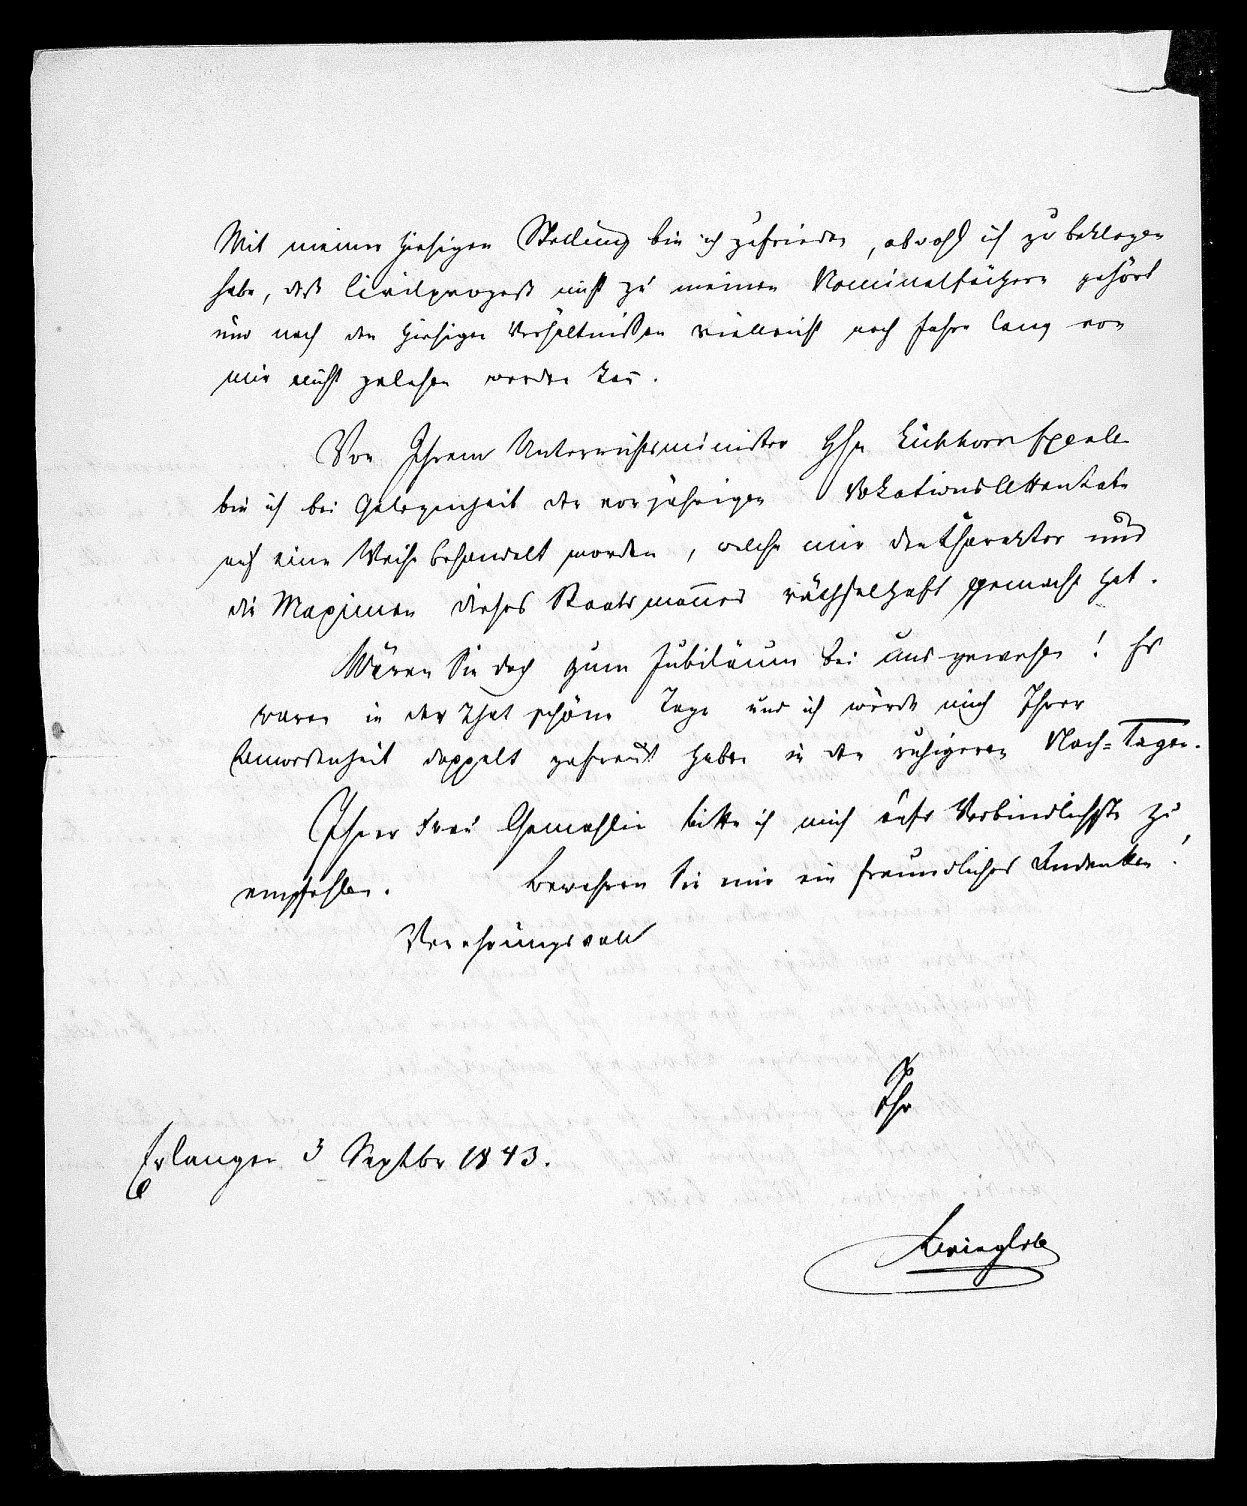 Mit meiner hiesigen Stellung bin ich zufrieden, obwohl ich zu beklagen
habe, daß Civilprozeß nicht zu meinen Nominalfächern gehört
und nach den hiesigen Verhältnißen vielleicht noch Jahre lang von
mir nicht gelesen werden kan.
Von Ihrem Unterrichtsminister Hn Eichhorn
bin ich bei Gelegenheit der vorjährigen
auf eine Weise behandelt worden, welche mir den Charakter und
die Maximen dieses Staatsmannes räthselhaft gemacht hat.
Wären Sie doch zum Jubiläum bei uns gewesen! Es
waren in der That schöne Tage und ich würde mich Ihrer
Anwesenheit doppelt gefreut haben in den ruhigeren Nach=Tagen.
Ihrer Frau Gemahlin bitte ich mich aufs Verbindlichste zu
empfehlen. Bewahren Sie mir ein freundliches Andenken!
Verehrungsvoll
Ihr
Erlangen 3 Septbr 1843.